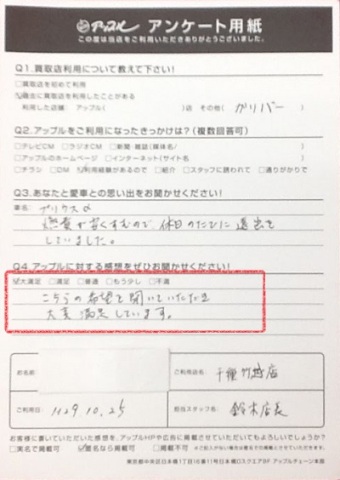 アップル アンケート用紙
この度は当店をご利用いただきありがとうございました。
Q1.買取店利用について教えて下さい!
□買取店を初めて利用
☑過去に買取店を利用したことがある
利用した店舗: アップル( )店 その他( ガリバー )
Q2.アップルをご利用になったきっかけは?(複数回答可)
□テレビCM □ラジオCM □新聞・雑誌(具体名/ )
□アップルのホームページ □インターネット(サイト名 )
□チラシ □DM ☑利用経験があるので □紹介 □スタッフに誘われて □通りがかりで
Q3.あなたと愛車との思い出をお聞かせください!
車名: プリウスα
燃費が安くすむので、休日のたびに遠出を
していました。
Q4.アップルに対する感想をぜひお聞かせください!
☑大満足 □満足 □普通 □もう少し □不満
こちらの希望を聞いていただき
大変満足しています。
お名前:
ご利用店名: 千種竹越店
ご利用日: H29.10.25
担当スタッフ名: 鈴木店長
お客様に書いていただいた感想を、アップルHPや広告に掲載させていただいてもよろしいでしょうか?
□実名で掲載可 ☑匿名なら掲載可 □掲載不可
東京都中央区日本橋1丁目16番11号日本橋Dスクエア8F アップルチェーン本部